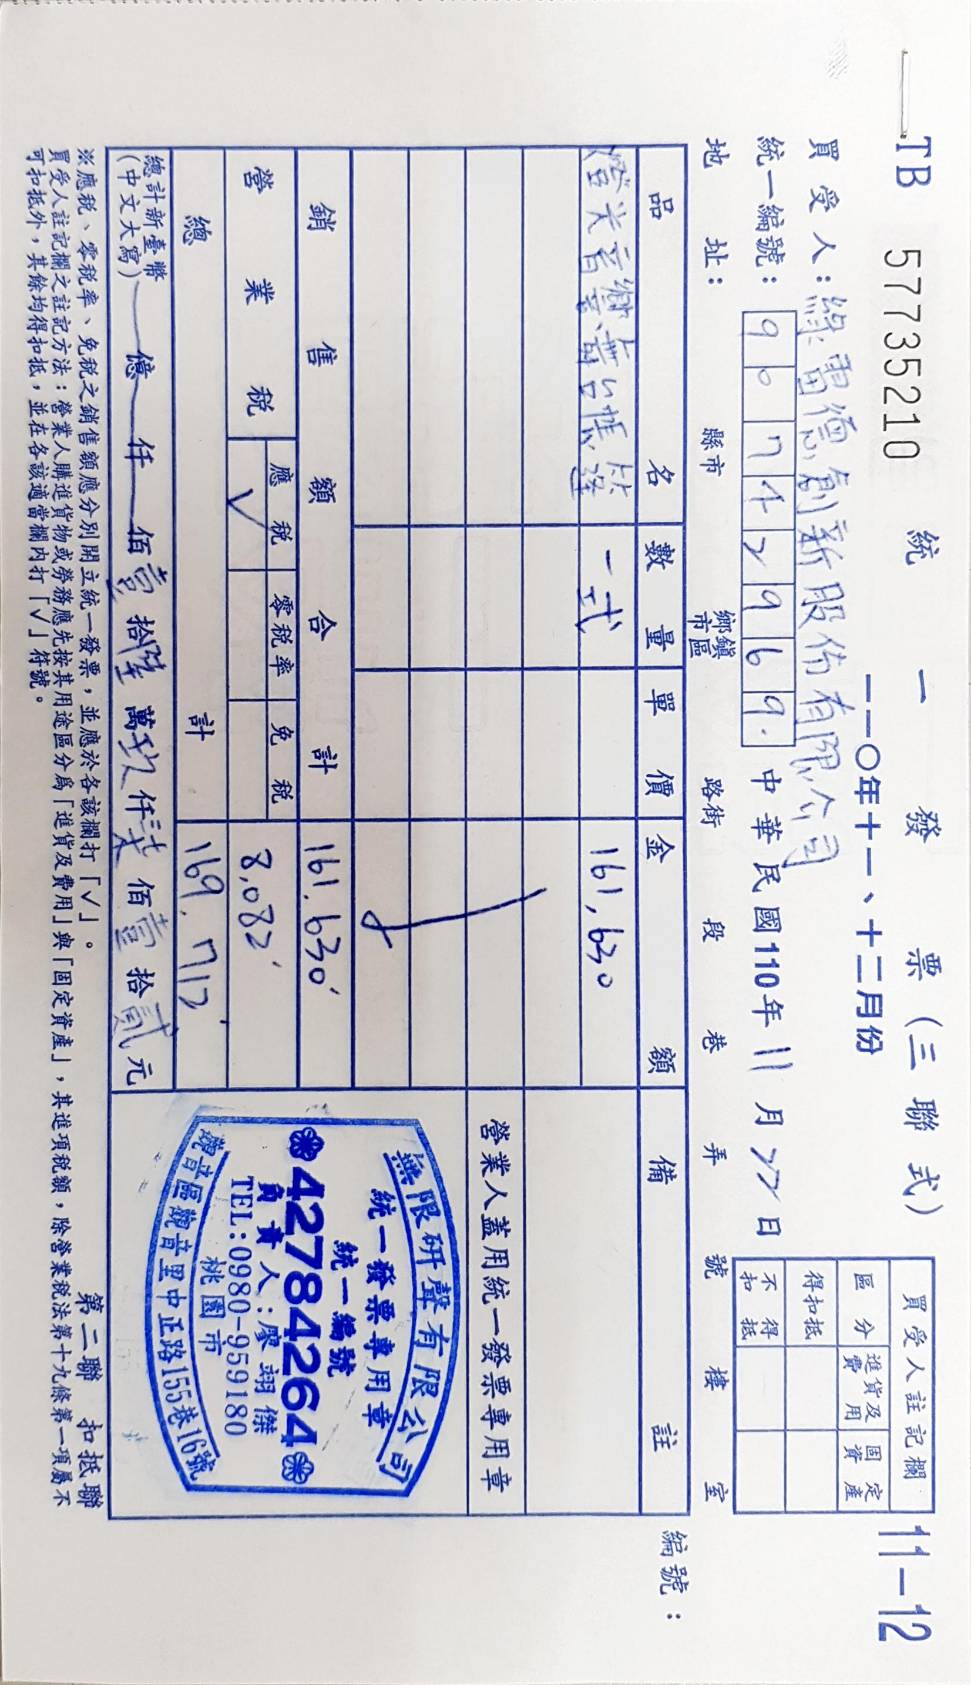 TB 57735210 統一發票(三聯式) 11-12
一一〇年十一、十二月份
買受人:綠雷德創新股份有限公司
統一編號:90742969 中華民國110年11月22日
地址: 縣市 鄉鎮市區 路街 段 巷 弄 號 樓 室
買受人註記欄
區分 進貨及費用 固定資產
得扣抵
不得扣抵
編號:
品名 數量 單價 金額 備註
燈光音響舞台帳篷 一式 161,630
營業人蓋用統一發票專用章
銷售額合計 161,630
營業稅 應稅 零稅率 免稅 8,082
√
總計 169,712
總計新臺幣(中文大寫) 億 仟 佰壹拾陸萬玖仟柒佰壹拾貳元
無限研聲有限公司
統一發票專用章
統一編號
42784264
負責人:廖翊傑
TEL:0980-959180
桃園市
觀音區觀音里中正路155巷16號
※應稅、零稅率、免稅之銷售額應分別開立統一發票,並應於各該欄打「√」。
買受人註記欄之註記方法:營業人購進貨物或勞務應先按其用途區分為「進貨及費用」與「固定資產」,其進項稅額,除營業稅法第十九條第一項屬不
可扣抵外,其餘均得扣抵,並在各該適當欄內打「√」符號。
第二聯 扣抵聯